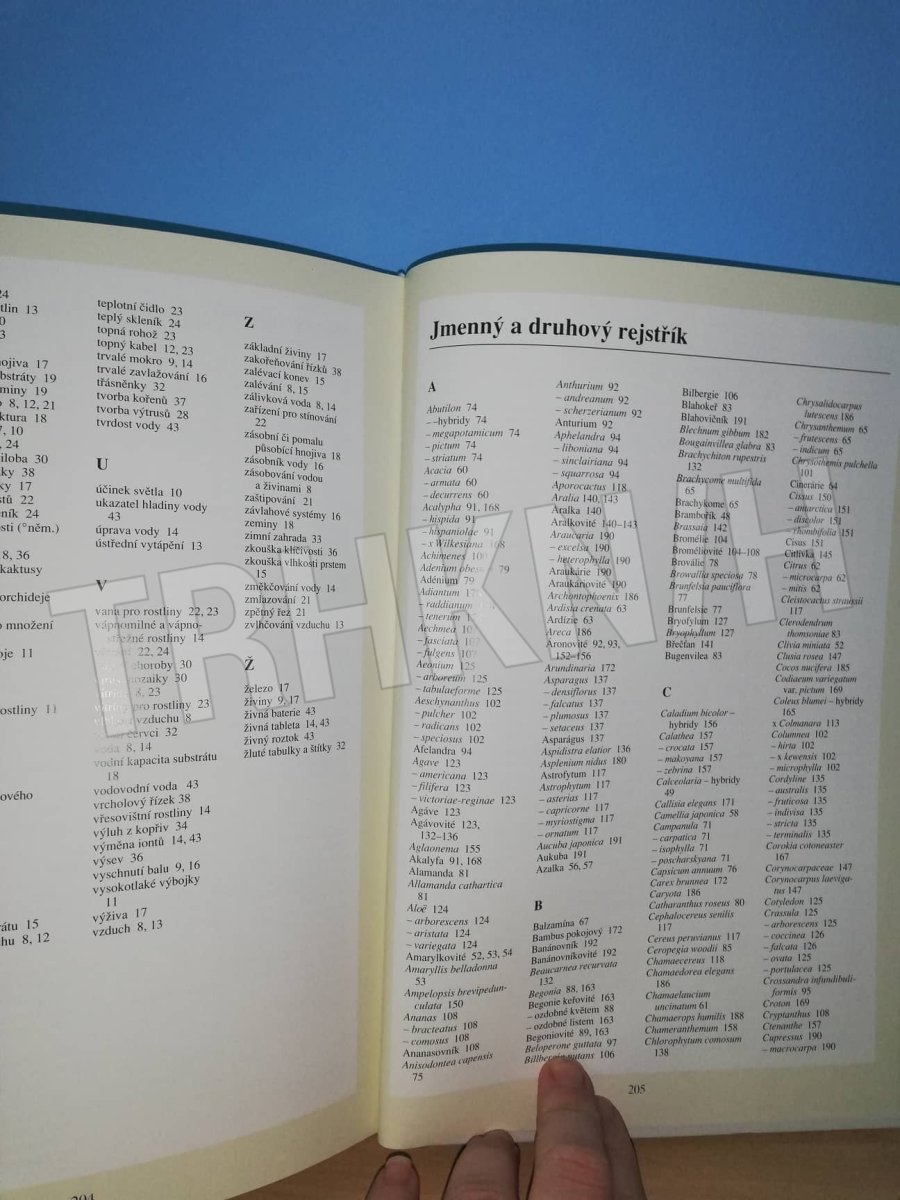 24
tlin 13
0
3
nojiva 17
ubstráty 19
miny 19
o 8, 12, 21
ktura 18
7, 10
, 24
iloba 30
íky 38
stů 22
eník 24
osti (°něm.)
8, 36
kaktusy
orchideje
o množení
oje 11
rostliny 11
ového
trátu 15
chu 8, 12
teplotní čidlo 23
teplý skleník 24
topná rohož 23
topný kabel 12, 23
trvalé mokro 9, 14
trvalé zavlažování 16
třásněnky 32
tvorba kořenů 37
tvorba výtrusů 28
tvrdost vody 43
U
účinek světla 10
ukazatel hladiny vody
43
úprava vody 14
ústřední vytápění 13
V
vana pro rostliny 22, 23
vápnomilné a vápno-
střežné rostliny 14
22, 24
choroby 30
mozaiky 30
8, 23
pro rostliny 23
vzduchu 8
červci 32
voda 8, 14
vodní kapacita substrátu
18
vodovodní voda 43
vrcholový řízek 38
vřesovištní rostliny 14
výluh z kopřiv 34
výměna iontů 14, 43
výsev 36
vyschnutí balu 9, 16
vysokotlaké výbojky
11
výživa 17
vzduch 8, 13
Z
základní živiny 17
zakořeňování řízků 38
zalévací konev 15
zalévání 8, 15
zálivková voda 8, 14
zařízení pro stínování
22
zásobní či pomalu
působící hnojiva 18
zásobník vody 16
zásobování vodou
a živinami 8
zaštipování 21
závlahové systémy 16
zeminy 18
zimní zahrada 33
zkouška klíčivosti 36
zkouška vlhkosti prstem
15
změkčování vody 14
zmlazování 21
zpětný řez 21
zvlhčování vzduchu 13
Ž
železo 17
živiny 9, 17
živná baterie 43
živná tableta 14, 43
živný roztok 43
žluté tabulky a štítky 32
204
Jmenný a druhový rejstřík
A
Abutilon 74
– -hybridy 74
– megapotamicum 74
– pictum 74
– striatum 74
Acacia 60
– armata 60
– decurrens 60
Acalypha 91, 168
– hispida 91
– hispaniolae 91
– x Wilkesiana 168
Achimenes
Adenium obesum 79
Adénium 79
Adiantum
– raddianum
– tenerum
Aechmea
– fasciata 107
– fulgens 107
Aeonium 125
– arboreum 125
– tabulaeforme 125
Aeschynanthus 102
– pulcher 102
– radicans 102
– speciosus 102
Afelandra 94
Agave 123
– americana 123
– filifera 123
– victoriae-reginae 123
Agáve 123
Agávovité 123,
132–136
Aglaonema 155
Akalyfa 91, 168
Alamanda 81
Allamanda cathartica
81
Aloë 124
– arborescens 124
– aristata 124
– variegata 124
Amarylkovité 52, 53, 54
Amaryllis belladonna
53
Ampelopsis brevipedun-
culata 150
Ananas 108
– bracteatus 108
– comosus 108
Ananasovník 108
Anisodontea capensis
75
Anthurium 92
– andreanum 92
– scherzerianum 92
Anturium 92
Aphelandra 94
– liboniana 94
– sinclairiana 94
– squarrosa 94
Aporocactus 118
Aralia 140, 143
Aralka 140
Aralkovité 140–143
Araucaria 190
– excelsa 190
– heterophylla 190
Araukárie 190
Araukáriovité 190
Archontophoenix 186
Ardisia crenata 63
Ardizie 63
Areca 186
Áronovité 92, 93,
152–156
Arundinaria 172
Asparagus 137
– densiflorus 137
– falcatus 137
– plumosus 137
– setaceus 137
Asparágus 137
Aspidistra elatior 136
Asplenium nidus 180
Astrofytum 117
Astrophytum 117
– asterias 117
– capricorne 117
– myriostigma 117
– ornatum 117
Aucuba japonica 191
Aukuba 191
Azalka 56, 57
B
Balzamína 67
Bambus pokojový 172
Banánovník 192
Banánovníkovité 192
Beaucarnea recurvata
132
Begonia 88, 163
Begonie keřovité 163
– ozdobné květem 88
– ozdobné listem 163
Begoniovité 89, 163
Beloperone guttata 97
Billbergia nutans 106
Bilbergie 106
Blahokeř 83
Blahovičník 191
Blechnum gibbum 182
Bougainvillea glabra 83
Brachychiton rupestris
132
Brachycome multifida
65
Brachykome 65
Brambořík 48
Brassaia 142
Bromélie 104
Broméliovité 104–108
Broválie 78
Browallia speciosa 78
Brunfelsia pauciflora
77
Brunfelsie 77
Bryofylum 127
Bryophyllum 127
Břečťan 141
Bugenvilea 83
C
Caladium bicolor –
hybridy 156
Calathea 157
– crocata 157
– makoyana 157
– zebrina 157
Calceolaria – hybridy
49
Callisia elegans 171
Camellia japonica 58
Campanula 71
– carpatica 71
– isophylla 71
– poscharskyana 71
Capsicum annuum 76
Carex brunnea 172
Caryota 186
Catharanthus roseus 80
Cephalocereus senilis
117
Cereus peruvianus 117
Ceropegia woodii 85
Chamaecereus 118
Chamaedorea elegans
186
Chamaelaucium
uncinatum 61
Chamaerops humilis 188
Chameranthemum 158
Chlorophytum comosum
138
Chrysalidocarpus
lutescens 186
Chrysanthemum 65
– frutescens 65
– indicum 65
Chrysothemis pulchella
101
Cinerárie 64
Cissus 150
– antarctica 151
– discolor 151
– rhombifolia 151
Cisus 151
Citlivka 145
Citrus 62
– microcarpa 62
– mitis 62
Cleistocactus straussii
117
Clerodendrum
thomsoniae 83
Clivia miniata 52
Clusia rosea 147
Cocos nucifera 185
Codiaeum variegatum
var. pictum 169
Coleus blumei – hybridy
165
x Colmanara 113
Columnea 102
– hirta 102
– x kewensis 102
– microphylla 102
Cordyline 135
– australis 135
– fruticosa 135
– indivisa 135
– stricta 135
– terminalis 135
Corokia cotoneaster
167
Corynocarpaceae 147
Corynocarpus laeviga-
tus 147
Cotyledon 125
Crassula 125
– arborescens 125
– coccinea 126
– falcata 126
– ovata 125
– portulacea 125
Crossandra infundibuli-
formis 95
Croton 169
Cryptanthus 108
Ctenanthe 157
Cupressus 190
– macrocarpa 190
205
TRHKNIH